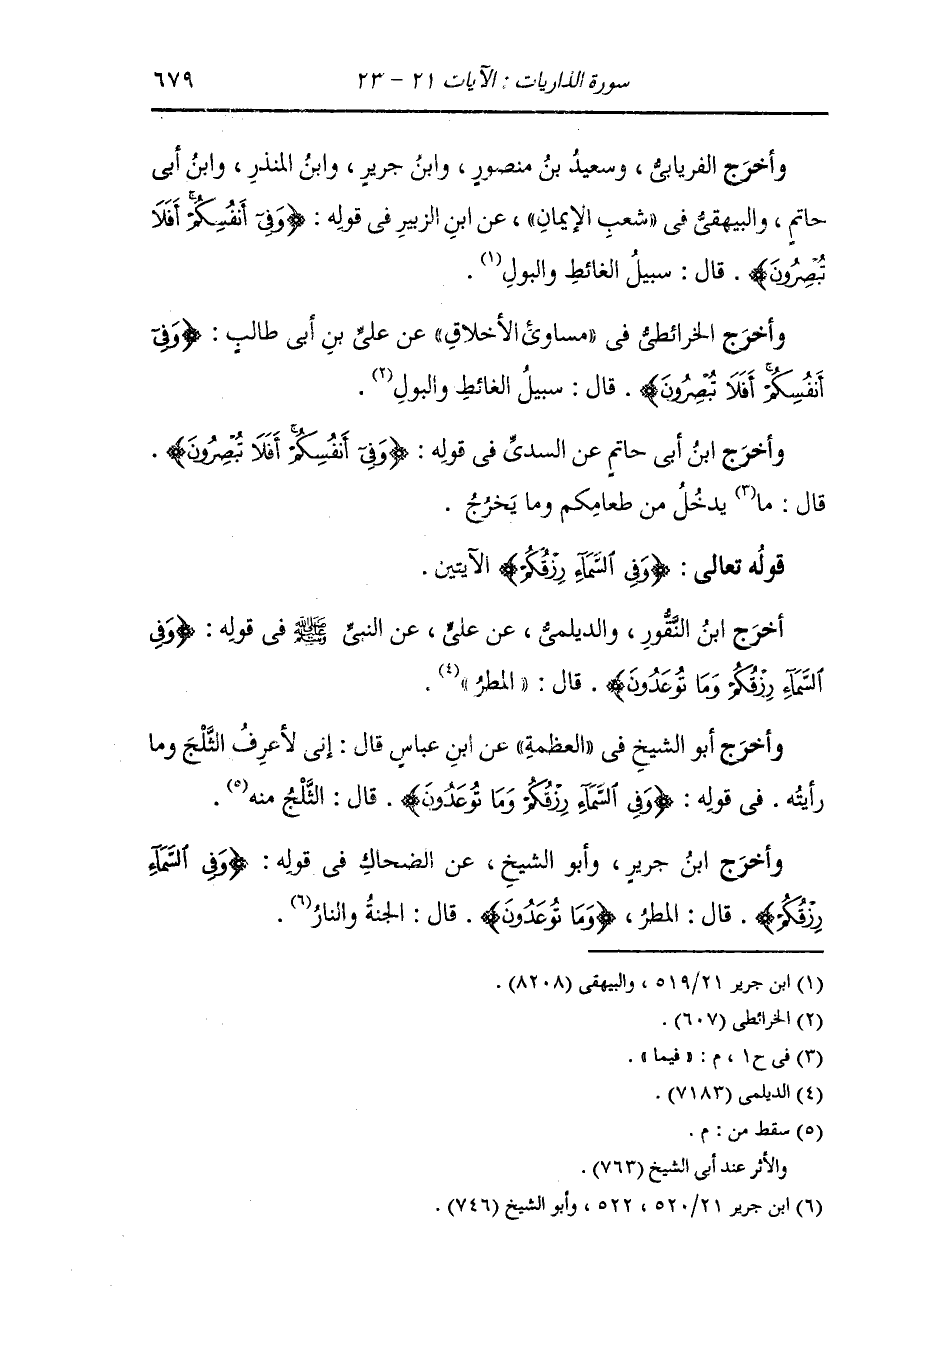 سورة الذاريات : الآيات ٢١ - ٢٣ ٦٧٩
وأخرَج الفريابىُّ ، وسعيدُ بنُ منصورٍ ، وابنُ جريرٍ ، وابنُ المنذرِ ، وابنُ أبى
حاتمٍ ، والبيهقىُّ فى «شعبِ الإيمانِ» ، عن ابنِ الزبيرِ فى قولِه : ﴿وَفِىٓ أَنفُسِكُمْۚ أَفَلَا
تُبْصِرُونَ﴾ . قال : سبيلُ الغائطِ والبولِ(١) .
وأخرَج الخرائطىُّ فى «مساوئِ الأخلاقِ» عن علىِّ بنِ أبى طالبٍ : ﴿وَفِىٓ
أَنفُسِكُمْۚ أَفَلَا تُبْصِرُونَ﴾ . قال : سبيلُ الغائطِ والبولِ(٢) .
وأخرَج ابنُ أبى حاتمٍ عن السدىِّ فى قولِه : ﴿وَفِىٓ أَنفُسِكُمْۚ أَفَلَا تُبْصِرُونَ﴾ .
قال : ما(٣) يدخُلُ من طعامِكم وما يَخرُجُ .
قولُه تعالى : ﴿وَفِى ٱلسَّمَآءِ رِزْقُكُمْ﴾ الآيتين .
أخرَج ابنُ النَّقُّورِ ، والديلمىُّ ، عن علىٍّ ، عن النبىِّ ﷺ فى قولِه : ﴿وَفِى
ٱلسَّمَآءِ رِزْقُكُمْ وَمَا تُوعَدُونَ﴾ . قال : « المطرُ »(٤) .
وأخرَج أبو الشيخِ فى «العظمةِ» عن ابنِ عباسٍ قال : إنى لأعرِفُ الثَّلْجَ وما
رأيتُه . فى قولِه : ﴿وَفِى ٱلسَّمَآءِ رِزْقُكُمْ وَمَا تُوعَدُونَ﴾ . قال : الثَّلْجُ منه(٥) .
وأخرَج ابنُ جريرٍ ، وأبو الشيخِ ، عن الضحاكِ فى قولِه : ﴿وَفِى ٱلسَّمَآءِ
رِزْقُكُمْ﴾ . قال : المطرُ ، ﴿وَمَا تُوعَدُونَ﴾ . قال : الجنةُ والنارُ(٦) .
(١) ابن جرير ٥١٩/٢١ ، والبيهقى (٨٢٠٨) .
(٢) الخرائطى (٦٠٧) .
(٣) فى ح١ ، م : « فيما » .
(٤) الديلمى (٧١٨٣) .
(٥) سقط من : م .
والأثر عند أبى الشيخ (٧٦٣) .
(٦) ابن جرير ٥٢٠/٢١ ، ٥٢٢ ، وأبو الشيخ (٧٤٦) .